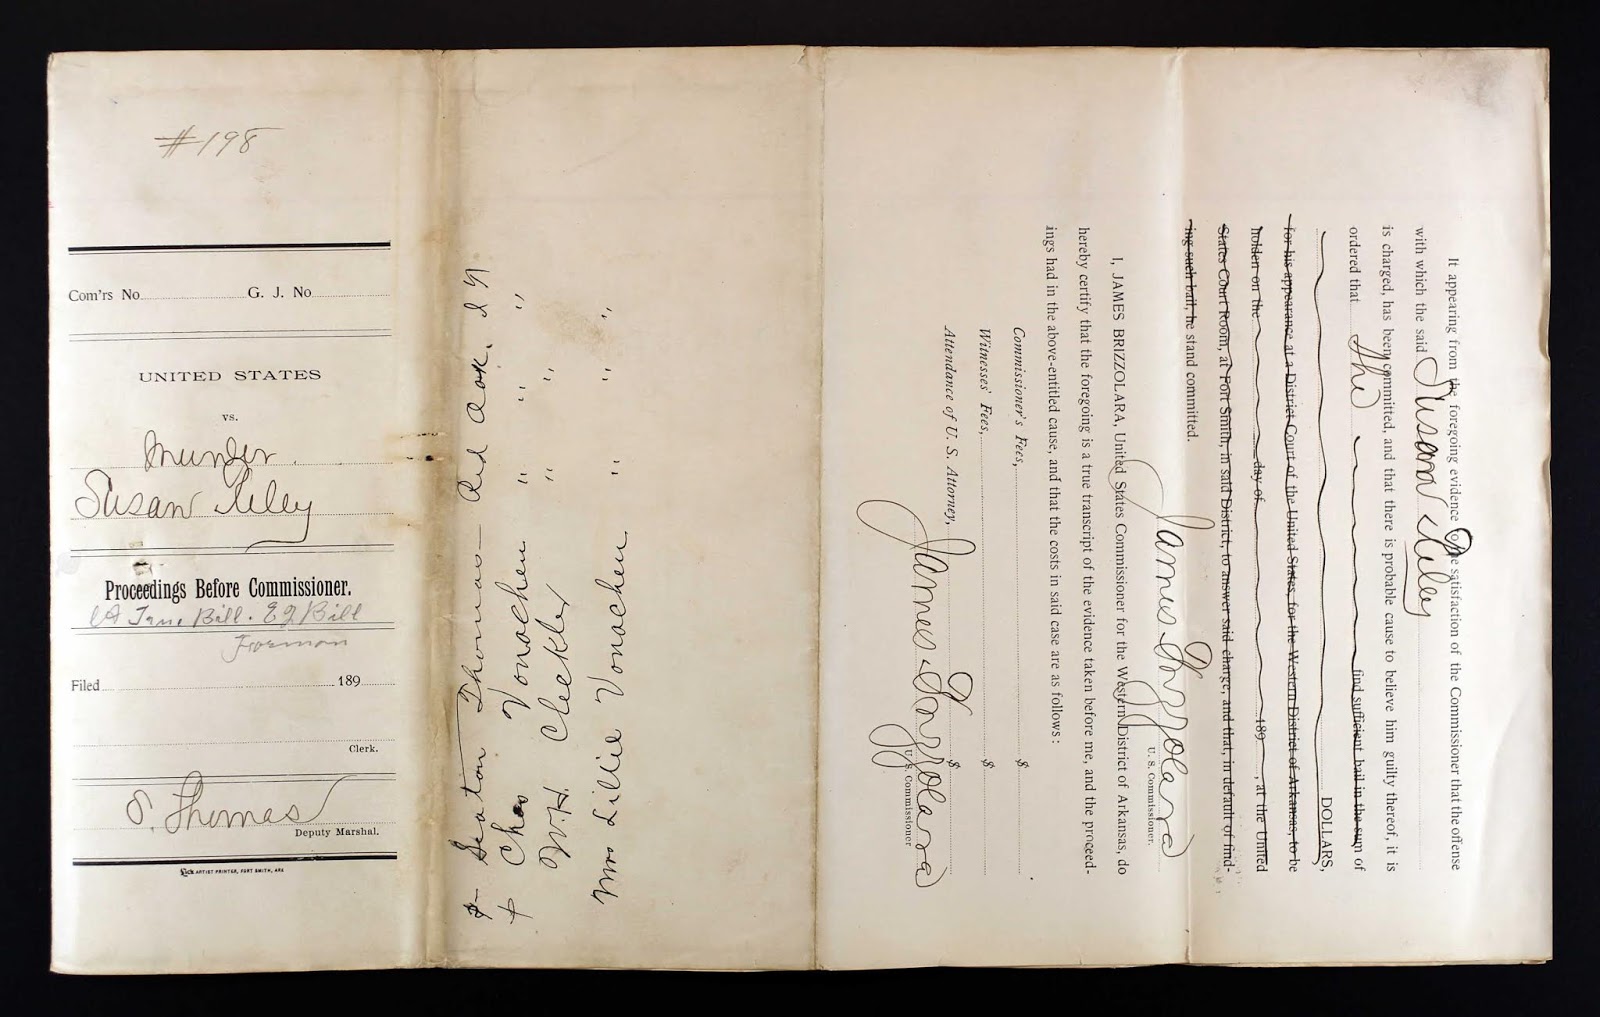 #198
Com'rs No. G. J. No.
UNITED STATES
vs.
Murder.
Susan Riley
Proceedings Before Commissioner.
Bill. Bill
Forman
Filed 189
Clerk.
S. Thomas
Deputy Marshal.
ARTIST PRINTER, FORT SMITH, ARK
Seaton Thomas — Red Oak. I N
Chas Vonachen " " "
W.H. Cleckler " "
Mrs Lillie Vonachen " " "
It appearing from the foregoing evidence to the satisfaction of the Commissioner that the offense
with which the said Susan Riley
is charged, has been committed, and that there is probable cause to believe him guilty thereof, it is
ordered that She find sufficient bail in the sum of
DOLLARS,
for his appearance at a District Court of the United States, for the Western District of Arkansas, to be
holden on the day of 189 , at the United
States Court Room, at Fort Smith, in said District, to answer said charge, and that, in default of find-
ing such bail, he stand committed.
James Brizzolara
U. S. Commissioner.
I, JAMES BRIZZOLARA, United States Commissioner for the Western District of Arkansas, do
hereby certify that the foregoing is a true transcript of the evidence taken before me, and the proceed-
ings had in the above-entitled cause, and that the costs in said case are as follows:
Commissioner's Fees, $
Witnesses' Fees, $
Attendance of U. S. Attorney, $
James Brizzolara
U. S. Commissioner